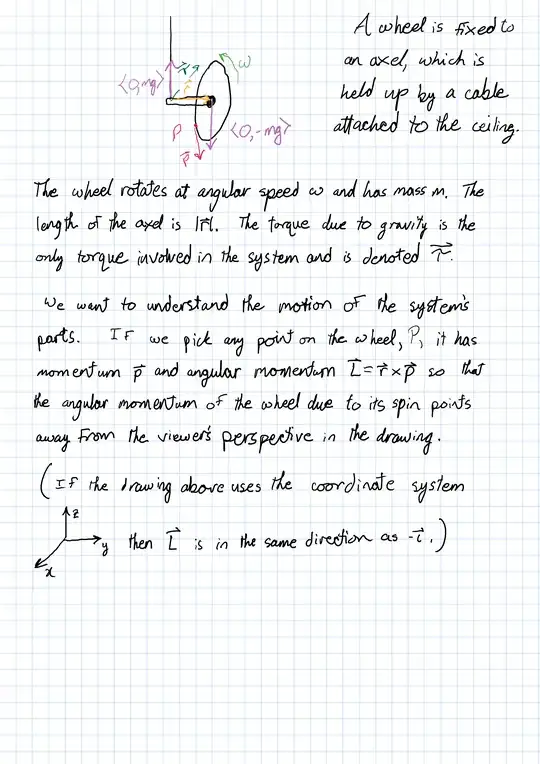 A wheel is fixed to
an axel, which is
held up by a cable
attached to the ceiling.
⟨0, mg⟩
τ⃗
r⃗
ω
P
p⃗
⟨0, -mg⟩
The wheel rotates at angular speed ω and has mass m. The
length of the axel is |r⃗|. The torque due to gravity is the
only torque involved in the system and is denoted τ⃗.
We want to understand the motion of the system's
parts. If we pick any point on the wheel, P, it has
momentum p⃗ and angular momentum L⃗ = r⃗ × p⃗ so that
the angular momentum of the wheel due to its spin points
away from the viewer's perspective in the drawing.
(If the drawing above uses the coordinate system
z
y
x
then L⃗ is in the same direction as -î.)